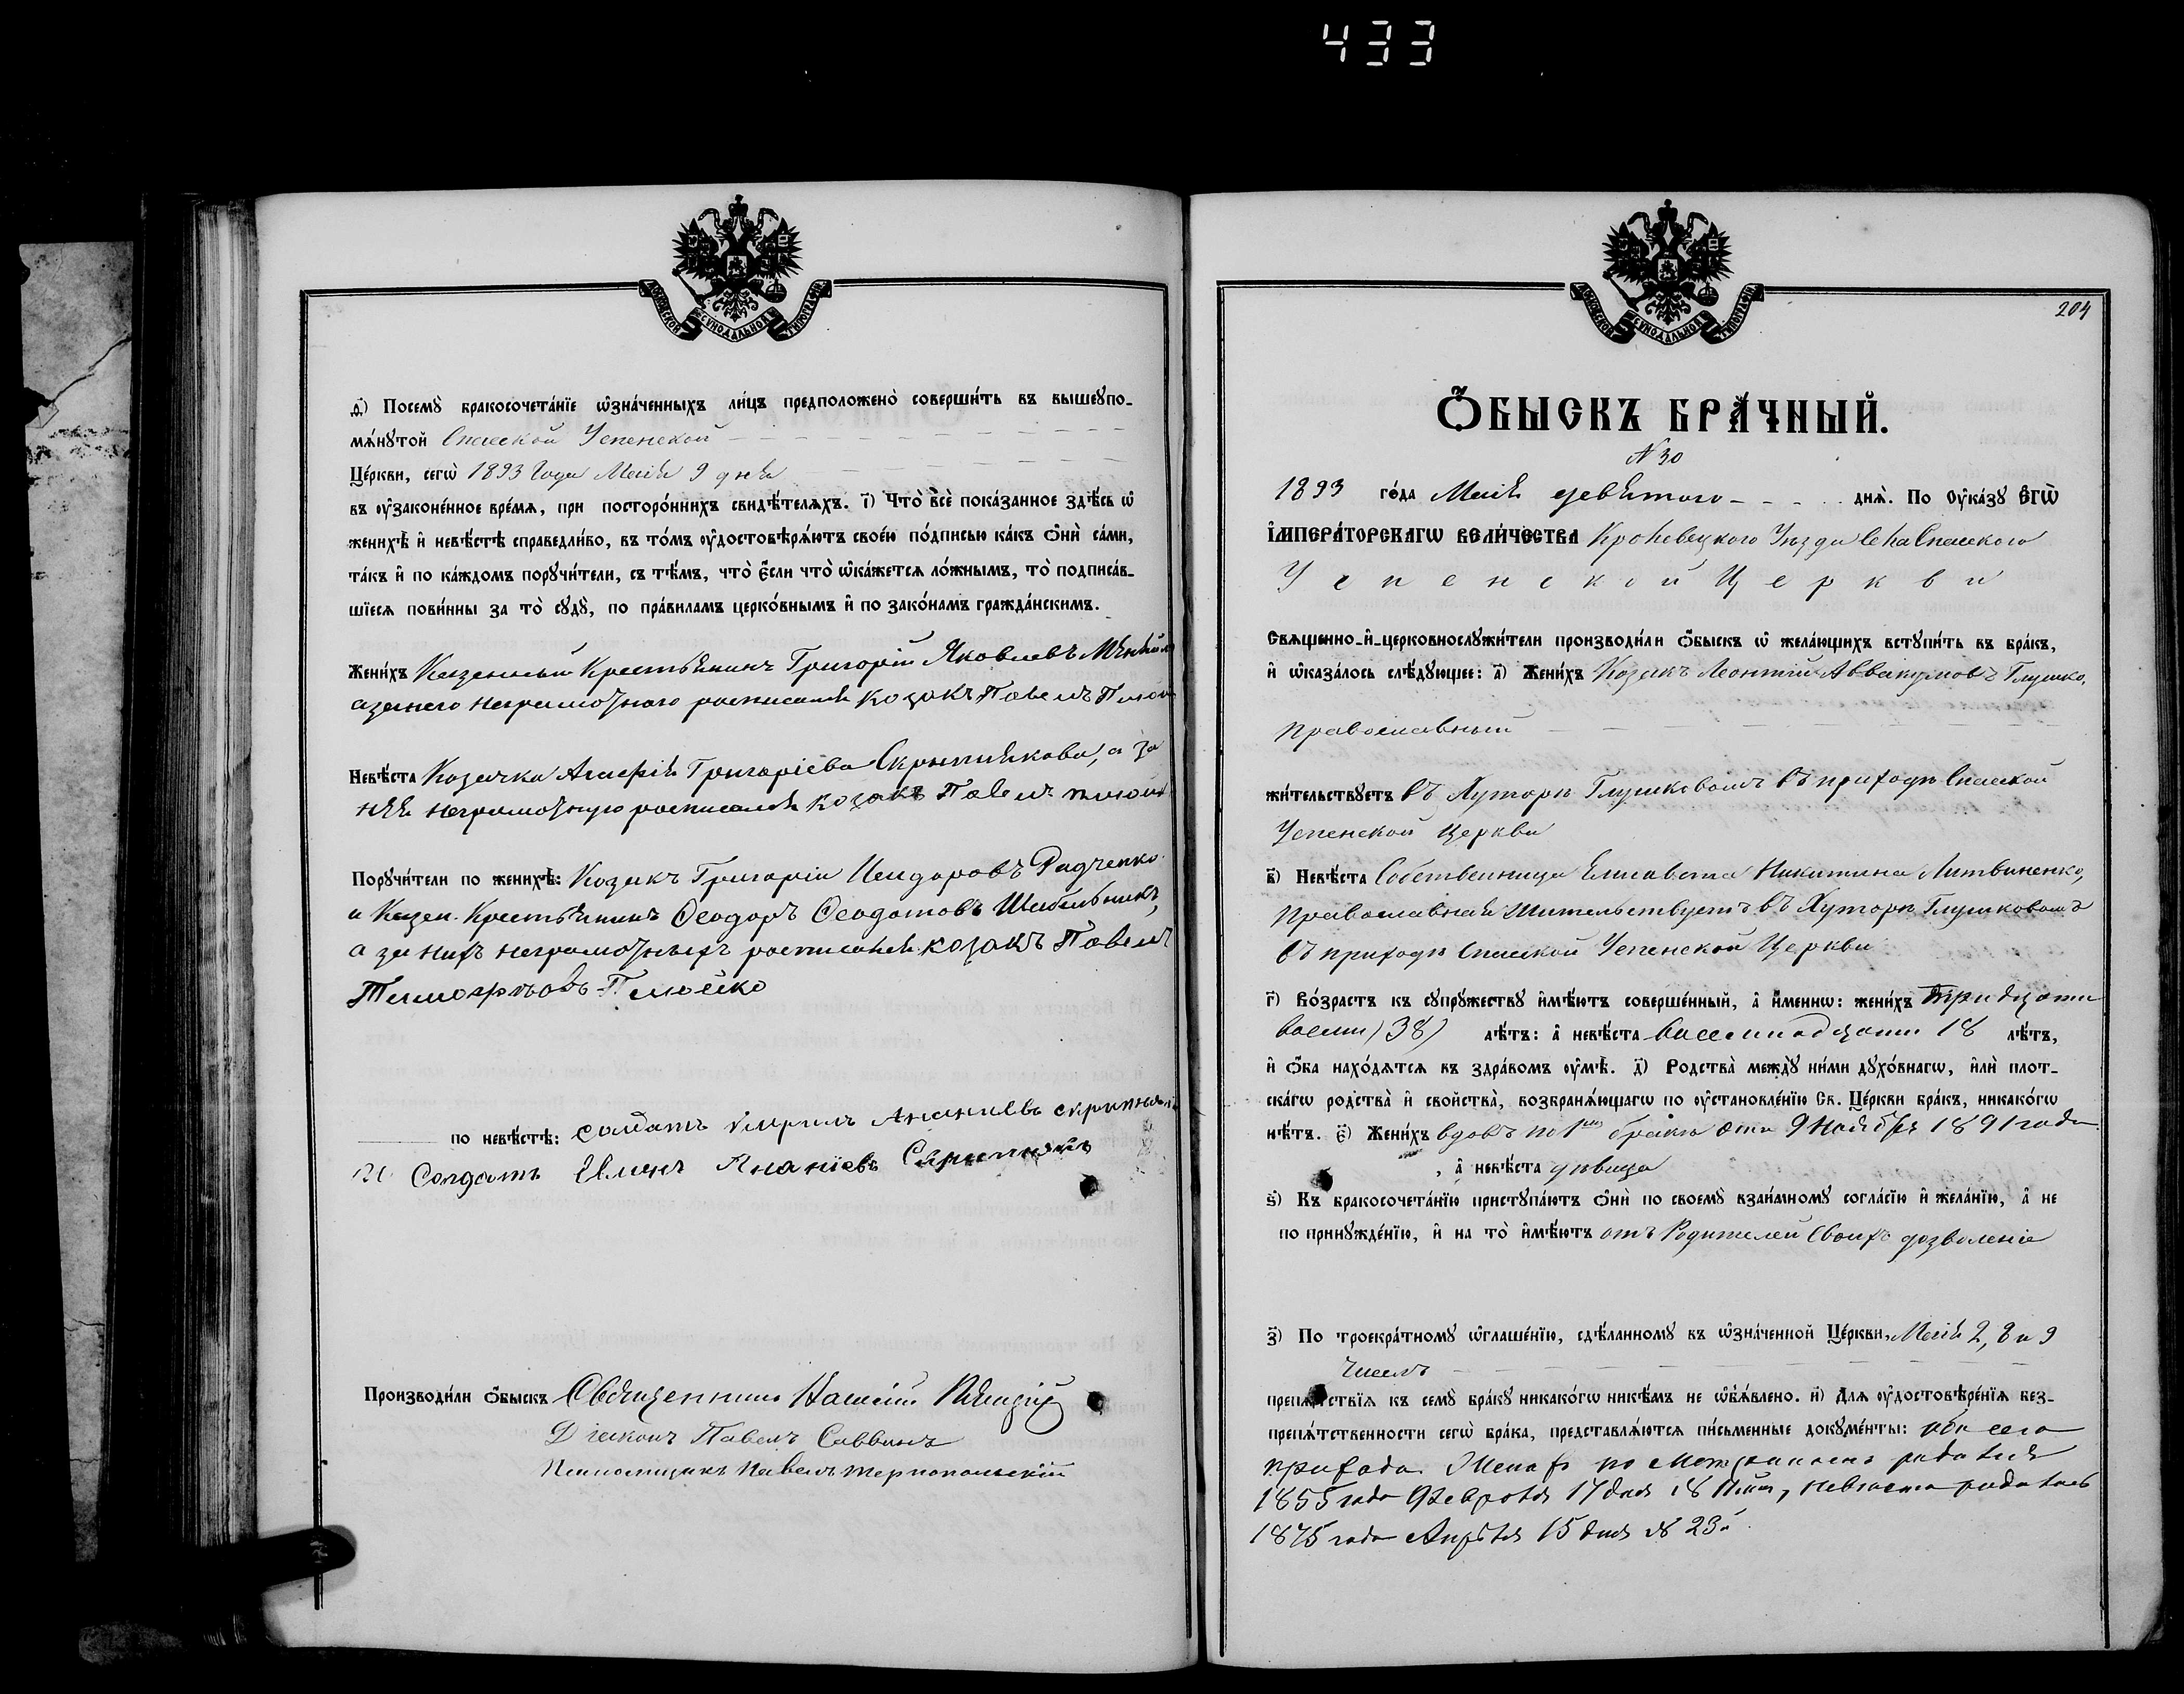 433
СѴНОДАЛЬНОЙ
д҃) Посемꙋ̀ бракосочета́нїе ѡ҆зна́ченныхъ ли́цъ предположено̀ соверши́ть въ вышеꙋпо-
мѧ́нꙋтой Спасской Успенской
Це́ркви, сегѡ̀ 1893 года Мая 9 дня
въ ᲂу҆законе́нное вре́мѧ, при посторо́ннихъ свидѣ́телѧхъ. і҃) Что̀ всѐ пока́занное здѣ́сь ѡ҆
женихѣ̀ и҆ невѣ́стѣ справедли́во, въ то́мъ ᲂу҆достовѣрѧ́ютъ свое́ю по́дписью ка́къ ѻ҆нѝ са́ми,
та́къ и҆ по ка́ждомъ порꙋчи́тели, съ тѣ́мъ, что̀ є҆́сли что̀ ѡ҆ка́жетсѧ ло́жнымъ, то̀ подписа́в-
шїесѧ пови́нны за то̀ сꙋдꙋ̀, по пра́виламъ церко́внымъ и҆ по зако́намъ гражда́нскимъ.
Жени́хъ Казенный Крестьянинъ Григорій Яковлевъ
а за него неграмотного росписался козакъ Павелъ
Невѣ́ста Козачка Агафія Григоріева Скрыпникова, а за
нея неграмотную росписался козакъ Павелъ
Порꙋчи́тели по женихѣ̀: Козакъ Григорій Исидоровъ Радченко
и Казен. Крестьянинъ Ѳеодоръ Ѳеодотовъ Шабельникъ,
а за нихъ неграмотныхъ росписался козакъ Павелъ
по невѣ́стѣ: солдатъ Ананіевъ
Солдатъ Ананіевъ Скрипникъ
Производи́ли ѻ҆́быскъ Священникъ
Діаконъ Павелъ Саввинъ
Псаломщикъ Павелъ Тернопольскій
СѴНОДАЛЬНОЙ
204
Ѻ҆́БЫСКЪ БРА́ЧНЫЙ.
N 30
1893 го́да Мая девятого днѧ̀. По ᲂу҆ка́зꙋ Е҆ГѠ̀
І҆МПЕРА́ТОРСКАГѠ ВЕЛИ́ЧЕСТВА Кролевецкого Уѣзда села Спасского
Успенской Церкви
Свѧщенно-и҆-церковнослꙋжи́тели производи́ли ѻ҆́быскъ ѡ҆ жела́ющихъ встꙋпи́ть въ бра́къ,
и҆ ѡ҆каза́лось слѣ́дꙋющее: а҃) Жени́хъ Козакъ Леонтій Аввакумовъ Глушко,
Православный
жи́тельствꙋетъ въ Хуторѣ Глушковомъ въ приходѣ Спасской
Успенской Церкви
в҃) Невѣ́ста Собственница Елисавета Никитина Литвиненко,
Православная жительствуетъ въ Хуторѣ Глушковомъ
въ приходѣ Спасской Успенской Церкви
г҃) Во́зрастъ къ сꙋпрꙋ́жествꙋ и҆мѣ́ютъ соверше́нный, а҆ и҆́меннѡ: жени́хъ тридцати
восьми (38) лѣ́тъ: а҆ невѣ́ста восемнадцати 18 лѣ́тъ,
и҆ ѻ҆́ба нахо́дѧтсѧ въ здра́вомъ ᲂу҆мѣ̀. д҃) Родства̀ междꙋ̀ ни́ми дꙋхо́внагѡ, и҆лѝ плот-
ска́гѡ родства̀ и҆ свойства̀, возбранѧ́ющагѡ по ᲂу҆становле́нїю Св. Це́ркви бра́къ, никако́гѡ
нѣ́тъ. є҃) Жени́хъ вдовъ по 1мъ бракѣ отъ 9 Ноября 1891 года
, а҆ невѣ́ста дѣвица
ѕ҃) Къ бракосочета́нїю пристꙋпа́ютъ ѻ҆нѝ по своемꙋ̀ взаи́мномꙋ согла́сїю и҆ жела́нїю, а҆ не
по принꙋжде́нїю, и҆ на то̀ и҆мѣ́ютъ отъ Родителей своихъ дозволеніе
з҃) По троекра́тномꙋ ѡ҆глаше́нїю, сдѣ́ланномꙋ въ ѡ҆зна́ченной Це́ркви, Мая 2, 8 и 9
чиселъ
препѧ́тствїѧ къ семꙋ̀ бра́кꙋ никако́гѡ никѣ́мъ не ѡ҆б̾ѧ́влено. и҃) Длѧ ᲂу҆достовѣре́нїѧ без-
препѧ́тственности сегѡ̀ бра́ка, представлѧ́ютсѧ пи́сьменные докꙋме́нты: оба сего
прихода. Женихъ по метрикамъ родился
1855 года Февраля 17 дня невѣста родилась
1875 года Апрѣля 15 дня № 23й.